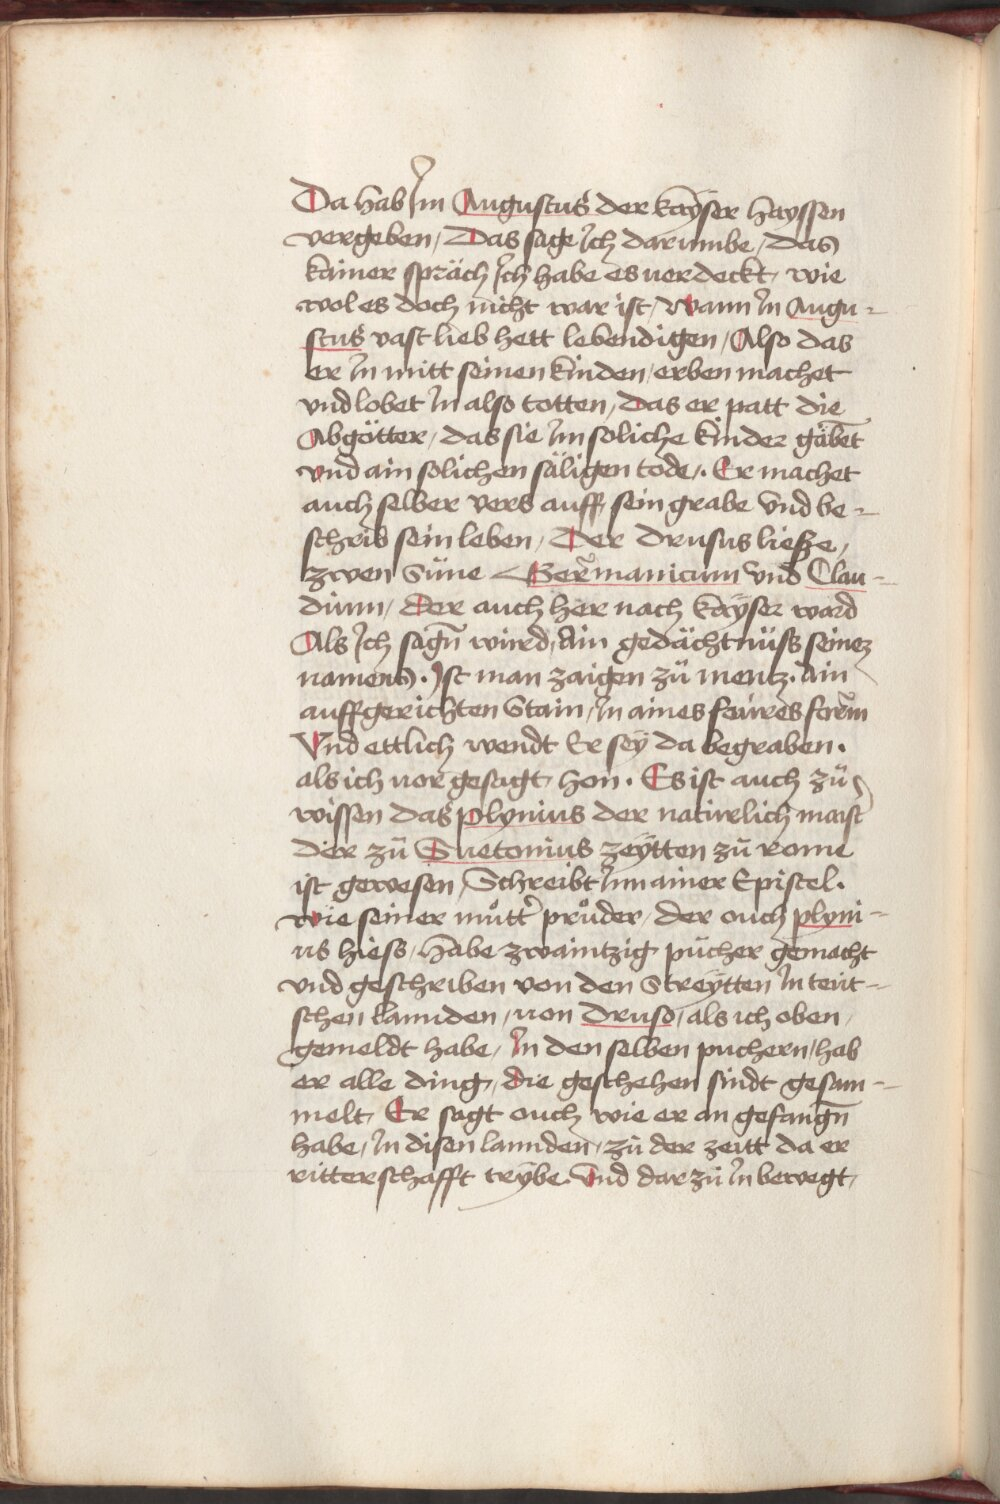 Da hab Im Augustus der kaÿser hayssen
vergeben / Das sage Ich darumbe / das
kainer spräch Ich habe es uerdeckt / wie
wol es doch nicht war ist / Wann In Augu-
stus vast lieb hett lebendigen / Also das
er In mitt seinen kinden / erben machet
vnd lobet In also totten / Das er patt die
Abgötter / das sie Im soliche kinder gäben̄t
vnd ain solichen säligen tode /. Er machet
auch selber vers auff sein grabe Vnd be-
schrib sein leben / Der Drusus liesze /
zwen Süne Germanicum vnd Clau-
dium / Der auch her nach kaÿser ward
Als Ich sagn̄ wird / Ain gedächtnüss seinez
namens . Ist man zaigen zü mentz . Ain
auffgerichten Stain / In aines feüres form
Vnd ettlich wendt Er seÿ da begraben .
als ich uor gesagt hon . Es ist auch zü
wissen das plynius der naturlich maist
der zü Suetonius zeÿtten zü rome
ist gewesen / Schreibt Inn ainer Epistel .
wie seiner můtt' průder / der ouch plyni-
us hiess / habe zwaintzig pücher gemacht
vnd geschriben von den Streÿtten In teüt-
schen lannden / uon Druso / als ich oben /
gemeldt habe / In den selben puchern / hab
er alle ding / die geschehen sindt gesam-
melt / Er sagt ouch wie er an gefangn̄
habe / In disen lannden / zü der zeitt da er
ritterschafft trÿbe . Vnd dar zü In bewegt /